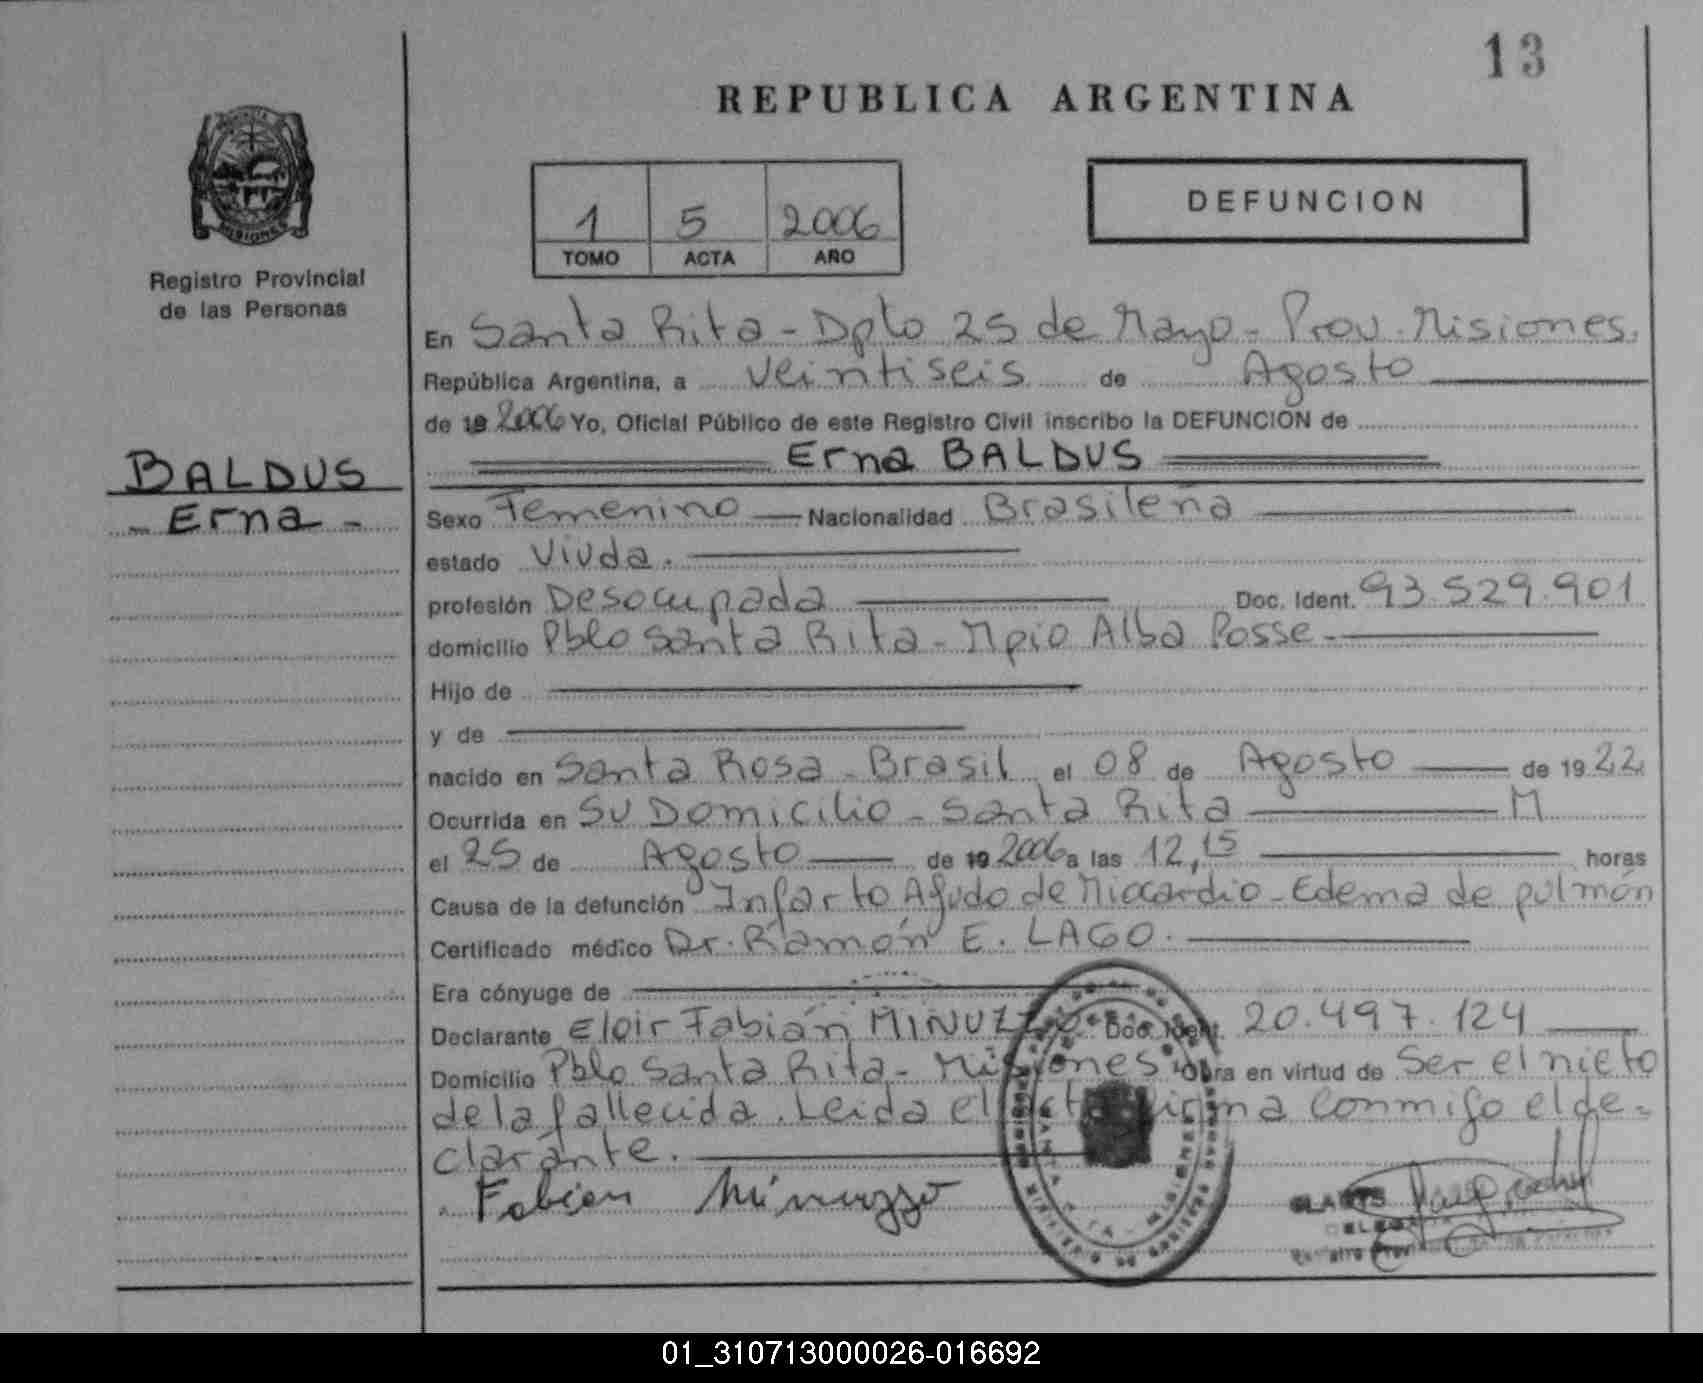 13
REPUBLICA ARGENTINA
MISIONES
Registro Provincial
de las Personas
1 5 2006
TOMO ACTA AÑO
DEFUNCION
En Santa Rita - Dpto 25 de Mayo - Prov. Misiones.
República Argentina, a veintiseis de Agosto
de 19 2006 Yo, Oficial Público de este Registro Civil inscribo la DEFUNCION de
Erna BALDUS
BALDUS
- Erna -
Sexo Femenino Nacionalidad Brasileña
estado Viuda.
profesión Desocupada Doc. Ident. 93.529.901
domicilio Pblo Santa Rita - Mpio Alba Posse -
Hijo de
y de
nacido en Santa Rosa - Brasil el 08 de Agosto de 1922
Ocurrida en Su Domicilio - Santa Rita M
el 25 de Agosto de 19 2006 a las 12,15 horas
Causa de la defunción Infarto Agudo de Miocardio - Edema de pulmón
Certificado médico Dr. Ramón E. LAGO.
Era cónyuge de
Declarante Eloir Fabián MINUZZO Doc. Ident. 20.497.124
Domicilio Pblo Santa Rita - Misiones Obra en virtud de Ser el nieto
de la fallecida. Leida el acta firma conmigo el de-
clarante.
Fabian Minuzzo
GLADYS
01_310713000026-016692